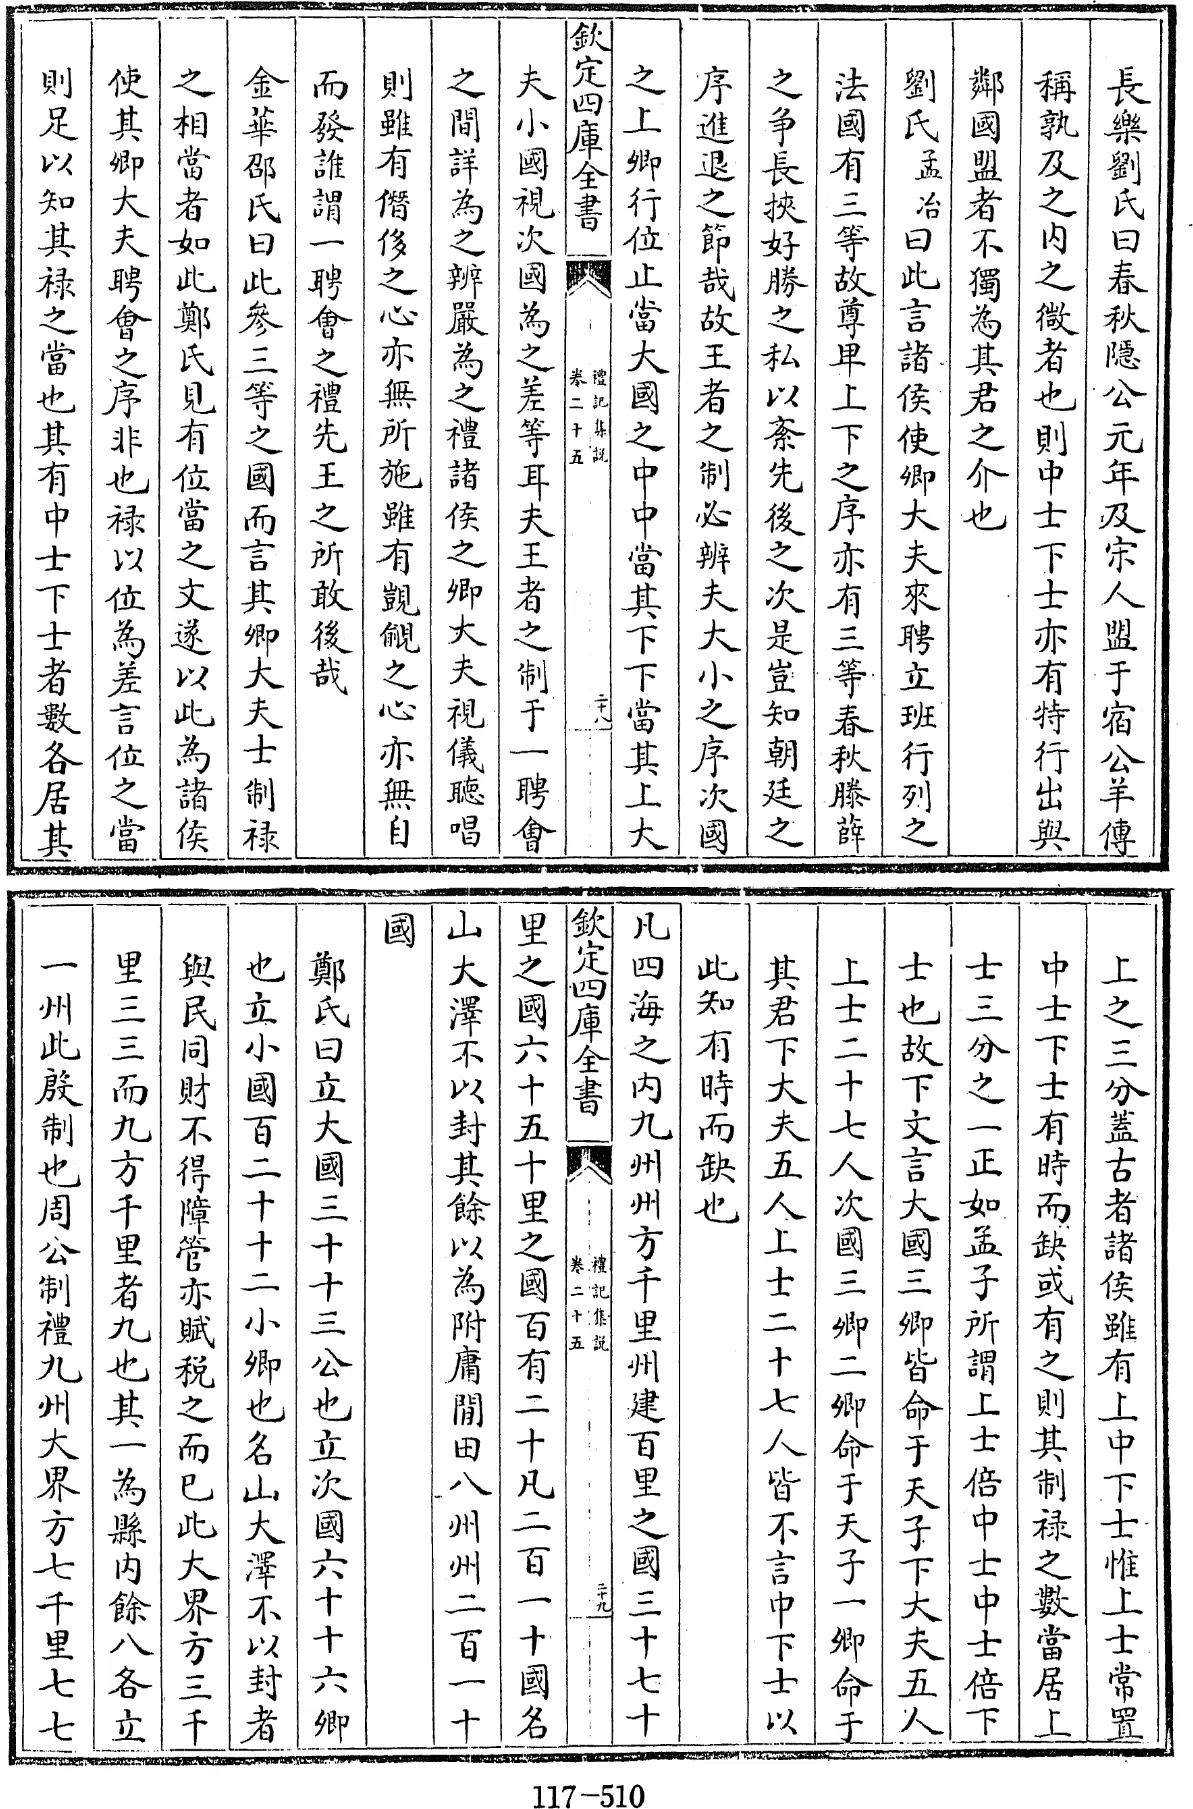 長樂劉氏曰春秋隱公元年及宋人盟于宿公羊傳
稱孰及之内之微者也則中士下士亦有特行出與
鄰國盟者不獨為其君之介也
劉氏孟冶曰此言諸侯使卿大夫來聘立班行列之
法國有三等故尊卑上下之序亦有三等春秋滕薛
之争長挾好勝之私以紊先後之次是豈知朝廷之
序進退之節哉故王者之制必辨夫大小之序次國
之上卿行位止當大國之中中當其下下當其上大
欽定四庫全書
禮記集說
卷二十五
二十八
夫小國視次國為之差等耳夫王者之制于一聘會
之間詳為之辨嚴為之禮諸侯之卿大夫視儀聽唱
則雖有僭侈之心亦無所施雖有覬覦之心亦無自
而發誰謂一聘會之禮先王之所敢後哉
金華邵氏曰此參三等之國而言其卿大夫士制禄
之相當者如此鄭氏見有位當之文遂以此為諸侯
使其卿大夫聘會之序非也禄以位為差言位之當
則足以知其禄之當也其有中士下士者數各居其
上之三分蓋古者諸侯雖有上中下士惟上士常置
中士下士有時而缺或有之則其制禄之數當居上
士三分之一正如孟子所謂上士倍中士中士倍下
士也故下文言大國三卿皆命于天子下大夫五人
上士二十七人次國三卿二卿命于天子一卿命于
其君下大夫五人上士二十七人皆不言中下士以
此知有時而缺也
凡四海之内九州州方千里州建百里之國三十七十
欽定四庫全書
禮記集說
卷二十五
二十九
里之國六十五十里之國百有二十凡二百一十國名
山大澤不以封其餘以為附庸閒田八州州二百一十
國
鄭氏曰立大國三十十三公也立次國六十十六卿
也立小國百二十十二小卿也名山大澤不以封者
與民同財不得障管亦賦稅之而已此大界方三千
里三三而九方千里者九也其一為縣内餘八各立
一州此殷制也周公制禮九州大界方七千里七七
117-510